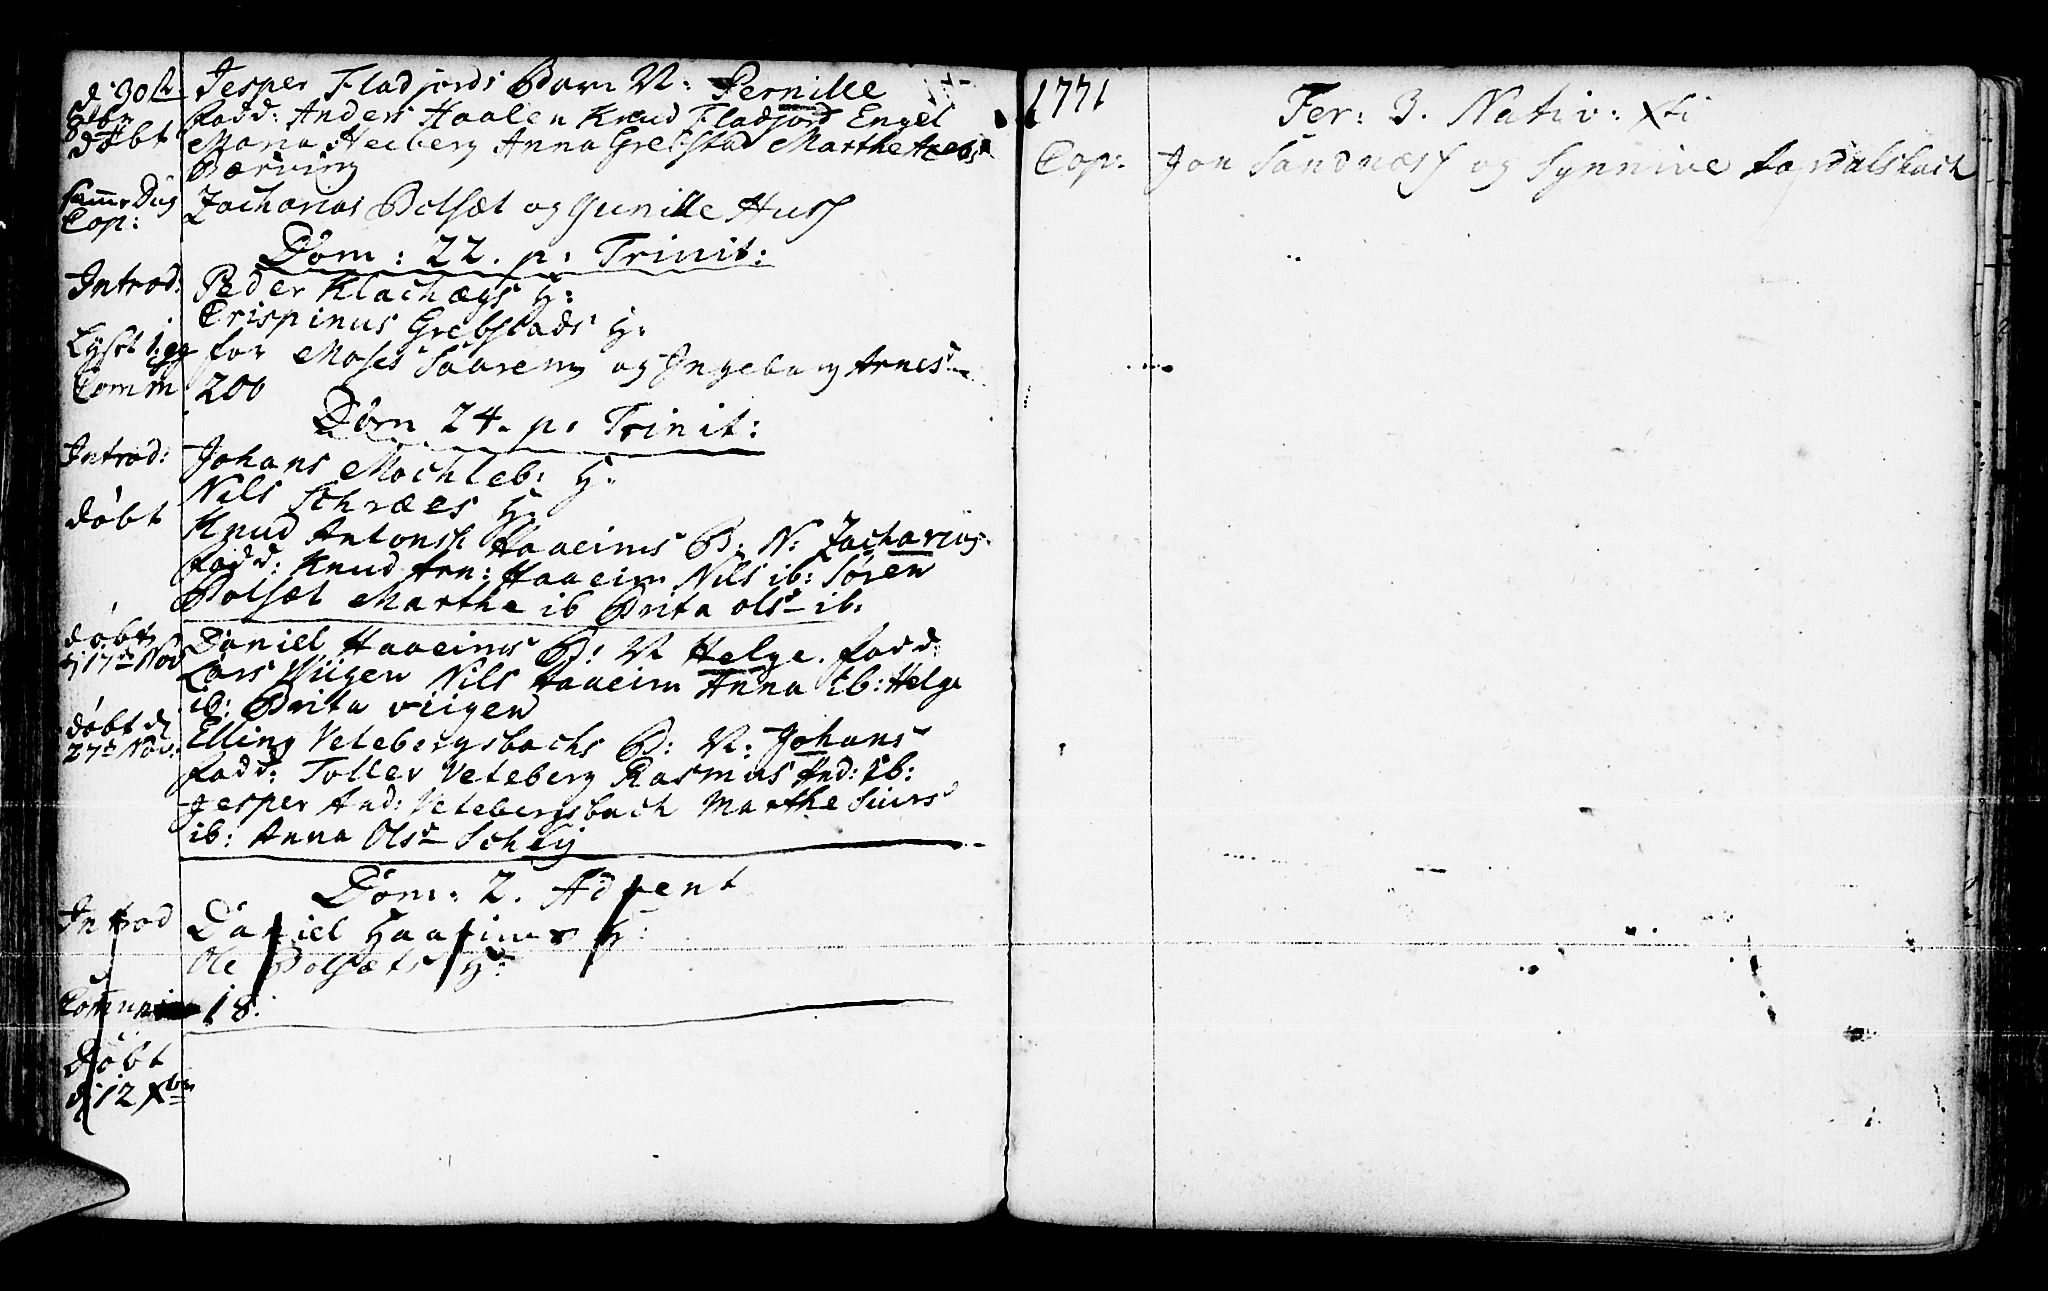 d: 30te
8tbr
døbt
Jesper Fladjords Barn N: Pernille
fadd: Anders Haalen Knud Fladjord Engel
Maria Heeberg Anna Grebstad Marthe
Bærring
samme Dag
Cop:
Zacharias Bolsæt og Gunille Huss
Dom: 22. p: Trinit:
Introd: Peder Klachægs H:
Crispinus Grebstads H:
Lyst 1: gg for Moses Saareng og Ingeborg Arnesd
Comm 200
Dom 24. p: Trinit:
Introd: Johans Mochleb: H:
Nils Schrees H:
døbt Knud Antonss Haaeims B: N: Zacharias
fadd: Knud Arn: Haaeim Nils ib: Søren
Bolsæt Marthe ib Brita Olsd ib:
døbt
d 17de Nov
Daniel Haaeims B: N Helge. fadd:
Lars Wiigen Nils Haaeim Anna ib: Helge
ib: Brita Wiigen
døbt d
27de Nov:
Elling Vetebergsbachs B: N: Johans
fadd: Toller Veteberg Rasmus And: ib:
Jesper And: Vetebergsbach Marthe Siurs
ib: Anna Olsd Scheij
Dom: 2. Advent
Introd Daniel Haaeims H:
Ole Bolsæts H:
18.
Døbt
d: 12 Xbr
1771
Fer: 3. Nativ: Xti
Cop: Jon Sandnæss og Synnive